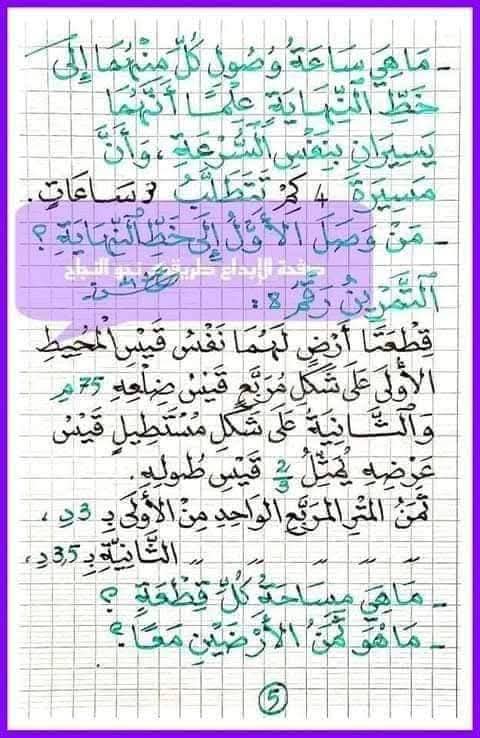 - مَا هِيَ سَاعَةُ وُصُولِ كُلِّ مِنْهُمَا إِلَى
خَطِّ النِّهَايَةِ عِلْمًا أَنَّهُمَا
يَسِيرَانِ بِنَفْسِ السُّرْعَةِ، وَأَنَّ
مَسِيرَةَ 4 كِمْ تَتَطَلَّبُ 3 سَاعَاتٍ.
- مَنْ وَصَلَ الأَوَّلُ إِلَى خَطِّ النِّهَايَةِ؟
صفحة الإبداع طريقك نحو النجاح
التَّمْرِينُ رَقْمُ 8:
قِطْعَتَا أَرْضٍ لَهُمَا نَفْسُ قَيْسِ الْمُحِيطِ
الأُولَى عَلَى شَكْلِ مُرَبَّعٍ قَيْسُ ضِلْعِهِ 75 م
وَالثَّانِيَةُ عَلَى شَكْلِ مُسْتَطِيلٍ قَيْسُ
عَرْضِهِ يُمَثِّلُ 2/3 قَيْسِ طُولِهِ.
ثَمَنُ المِتْرِ المُرَبَّعِ الوَاحِدِ مِنَ الأُولَى بِـ 3 دِ،
〃 〃 〃 〃 〃 الثَّانِيَةِ بِـ 3,5 دِ،
- مَا هِيَ مِسَاحَةُ كُلِّ قِطْعَةٍ؟
- مَا هُوَ ثَمَنُ الأَرْضَيْنِ مَعًا؟
5